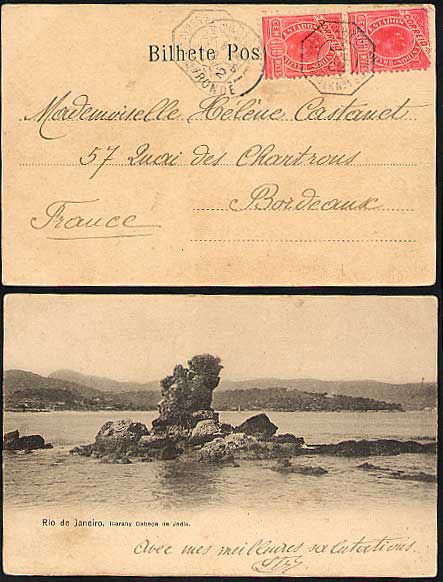 Bilhete Pos
GIRONDE
ESTADOS
CORREIO
Mademoiselle Hélène Castanet
57 Quai des Chartrons
Bordeaux
France
Rio de Janeiro. Icarahy Cabeça de India.
Avec mes meilleures salutations.